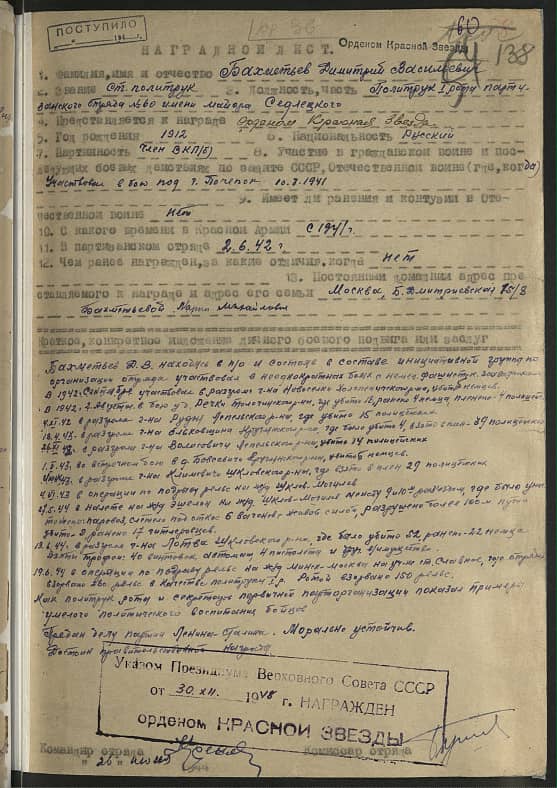 ПОСТУПИЛО
194 г.
138
НАГРАДНОЙ ЛИСТ. Орденом Красной Звезды
1. Фамилия, имя и отчество Бахметьев Димитрий Васильевич
2. Звание Ст. политрук 3. Должность, часть Политрук I роты парти
занского отряда №60 имени майора Седлецкого
4. Представляется к награде Орденом Красная Звезда
5. Год рождения 1912 6. Национальность Русский
7. Партийность Член ВКП(б) 8. Участие в гражданской войне и пос-
ледующих боевых действиях по защите СССР, Отечественной войне (где, когда)
Участвовал в бою под г. Почепом 10.8.1941
9. Имеет ли ранения и контузии в Оте-
чественной войне Нет
10. С какого времени в Красной Армии с 1941 г.
11. В партизанском отряде 2.6.42 г.
12. Чем ранее награжден, за какие отличия, когда нет
13. Постоянный домашний адрес пре
ставляемого к награде и адрес его семьи Москва, Б. Дмитриевская 15/8
Бахметьевой Марии Михайловне
Краткое, конкретное изложение личного боевого подвига или заслуг
Бахметьев Д.В. находясь в п/о и состоя в составе инициативной группы по
организации отряда участвовал в неоднократных боях с немец. фашистск.
В 1942 г. Сентября участвовал в разгроме г-на
В 1942 г. Августа в бою где убито 16, ранено 4 немца, пленено 4 полицейск.
4.XI.42 в разгроме г-на Рудня Лепельского р-на, где убито 15 полицейских
в разгроме г-на Ельковщина Круглянского р-на, где было убито 4, взято в плен 39 полицейских
в разгроме г-на Волосовичи Лепельского р-на, убито 34 полицейских
1.8.43, во встречном бою в д. Круглянского р-на, убито 6 немцев.
в разгроме г-на Климовичи Шкловского р-на, где взято в плен 29 полицейских
4.VI.43 в операции по подрыву рельс на ж/д Шклов-Могилев
27.5.44 в налете на ж/д эшелон на ж/д Шклов-Могилев между разъездом, где было
паровоз, слетело под откос 6 вагонов с живой силой, разрушено более 100 м. пути
убито 9 ранено 17 гитлеровцев.
13.6.44 г. в разгроме г-на Лотва Шкловского р-на, где было убито 52, ранен. 22 немца
Взяты трофеи: 40 винтовок автомат, 4 пистолета и друг. имущество.
19.6.44 в операции по подрыву рельс на ж/д Минск-Москва на уч-ке ст. Славное, где отрядом
взорвано рельс. В качестве политрука I р. Ротой взорвано 150 рельс.
Как политрук роты и секретарь первичной парторганизации показал примеры
умелого политического воспитания бойцов
Предан делу партии Ленина-Сталина. Морально устойчив.
Достоин правительственной награды
Указом Президиума Верховного Совета СССР
от 30.XII. 1948 г. НАГРАЖДЕН
орденом КРАСНОЙ ЗВЕЗДЫ
Командир отряда Комиссар отряда
"26"